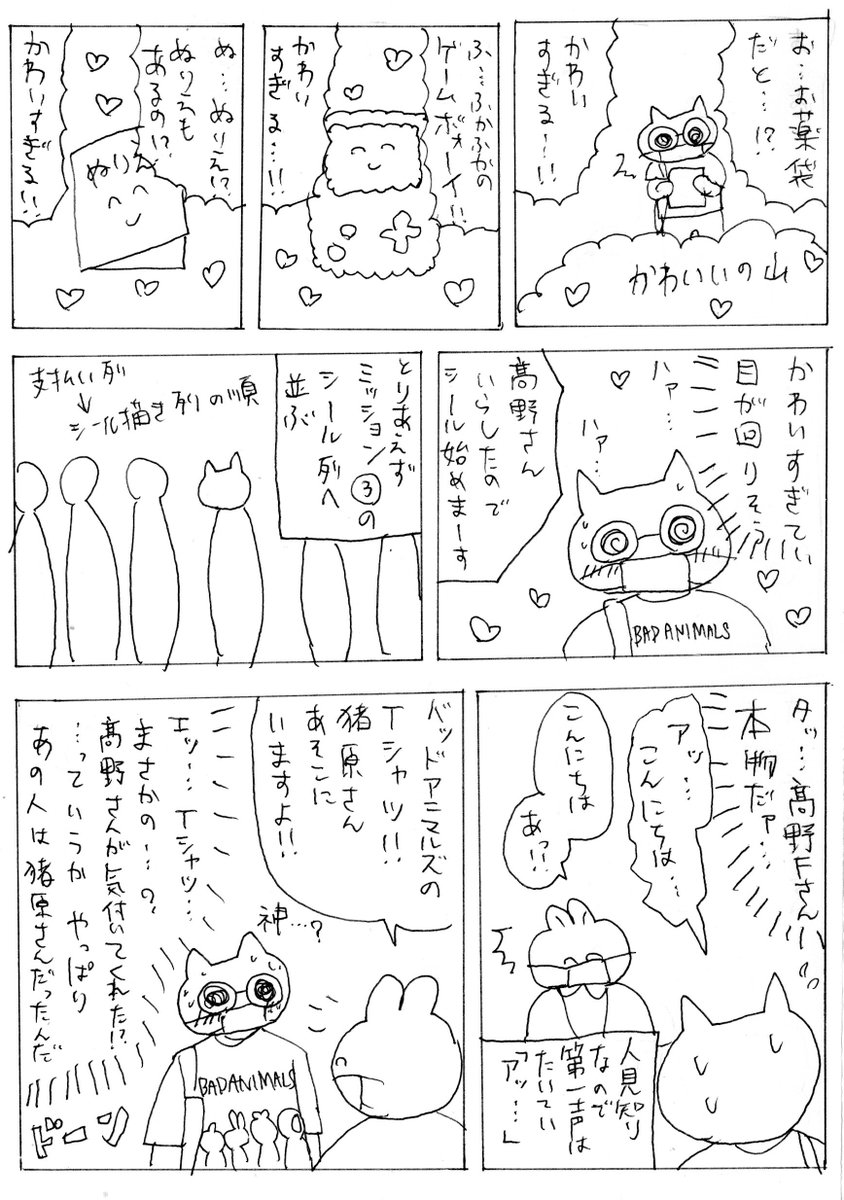 お…お薬袋
だと…!?
かわい
すぎる…!!
かわいいの山
ふ…ふかふかの
ゲームボォーイ!!
かわい
すぎる…!!
ぬ…ぬりえ!?
ぬりえも
あるの!?
かわいすぎる!!
ぬりえ
かわいすぎてい
目が回りそう
ハァ…
ハァ…
髙野さん
いらしたので
シール始めまーす
BAD ANIMALS
とりあえず
ミッション③の
シール列へ
並ぶ
支払い列
↓
シール描き列の順
タッ…髙野Fさん
本物だァ…
アッ…
こんにちは…
こんにちは
あっ!!
人見知り
なので
第一声は
たいてい
「アッ…」
バッドアニマルズの
Tシャツ!!
猪原さん
あそこに
いますよ!!
神…?
エッ…Tシャツ…
まさかの…?
髙野さんが気付いてくれた!?
…っていうか やっぱり
あの人は猪原さんだったんだ
BAD ANIMALS
ドーン